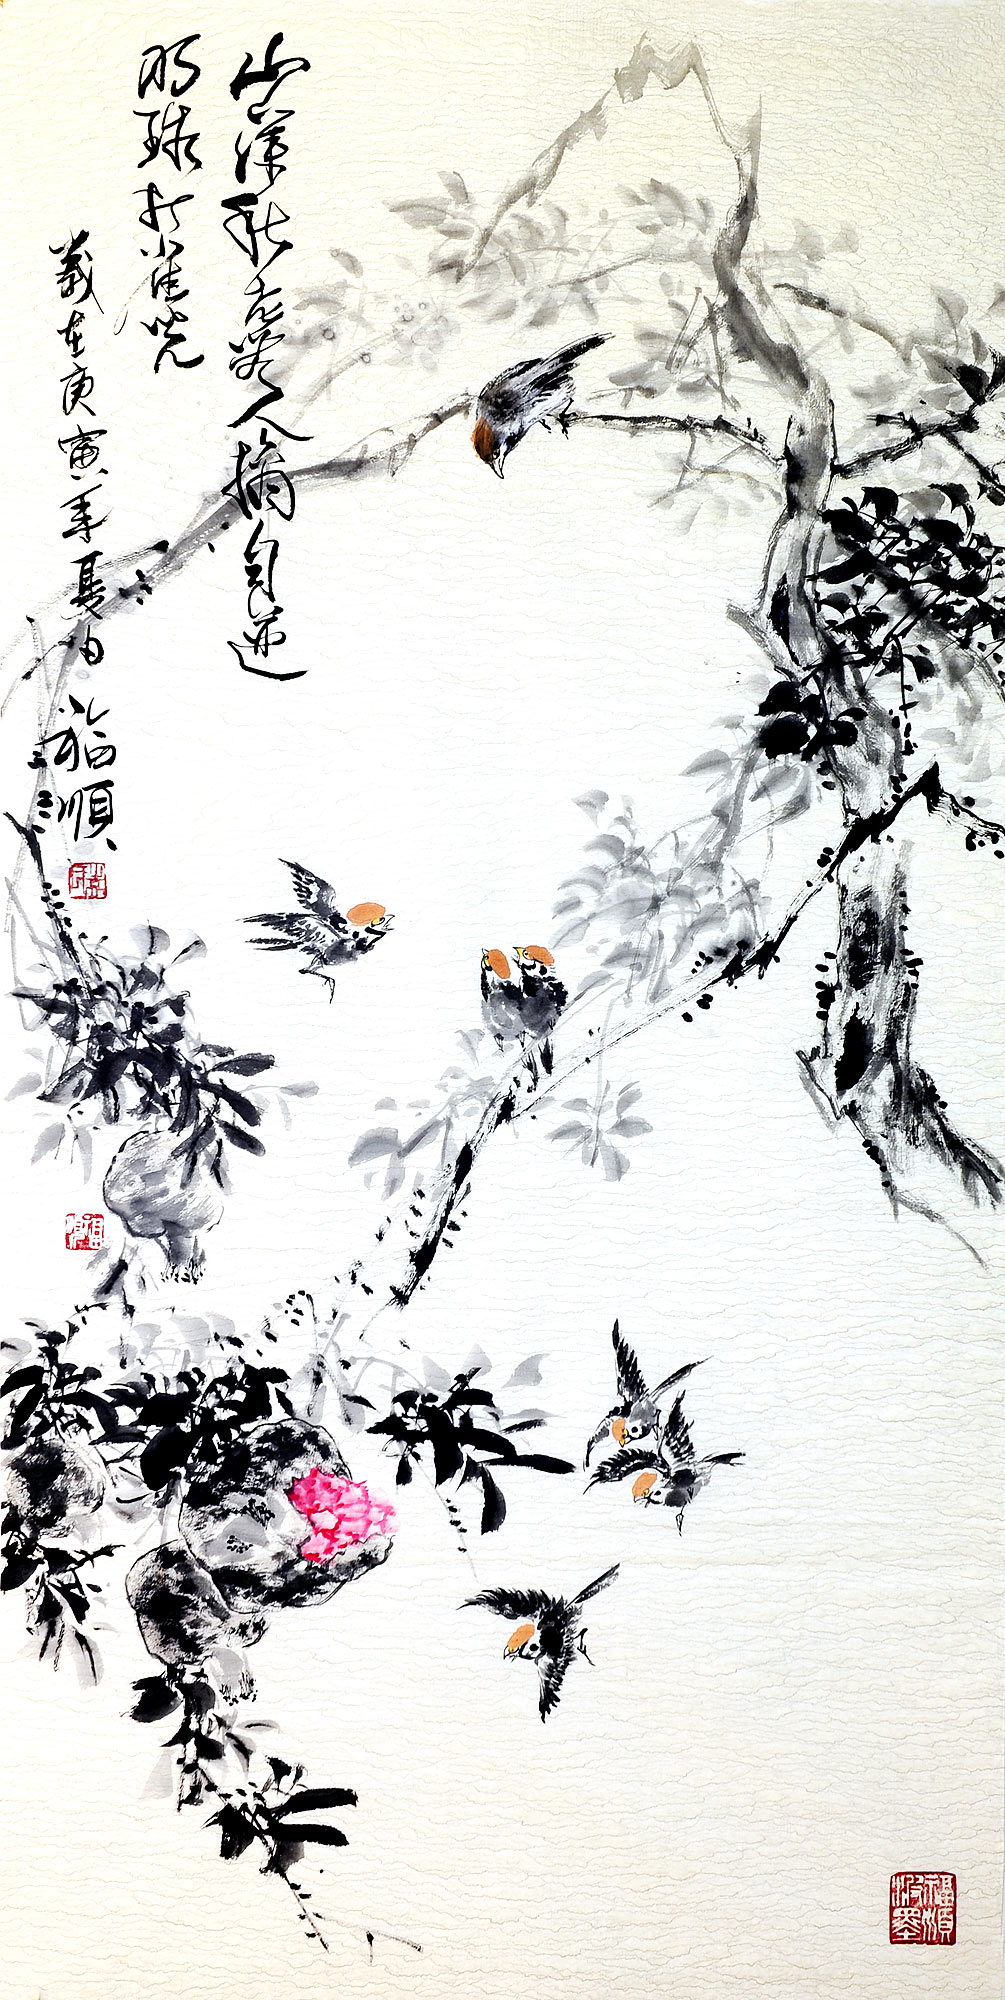 山深秋老無人摘自迸
明珠打雀兒
歲在庚寅年夏日 福順
福順
福順潑墨